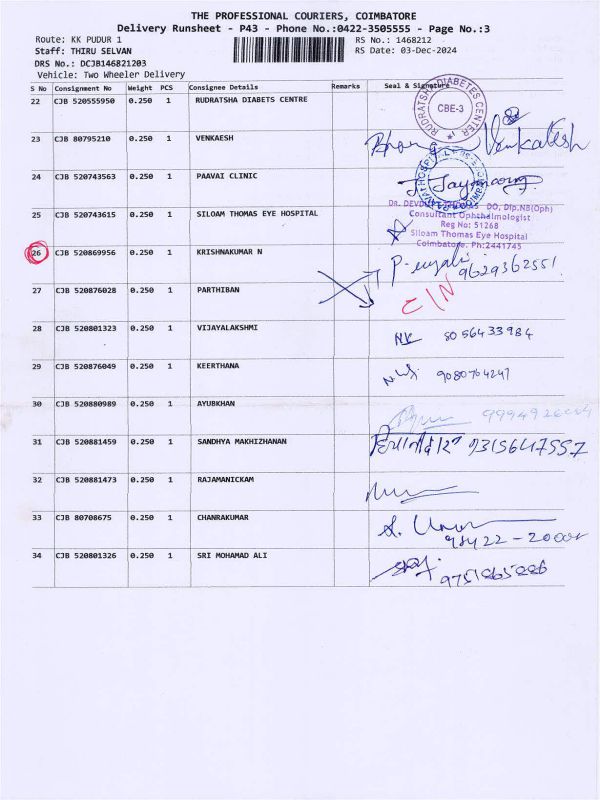 THE PROFESSIONAL COURIERS, COIMBATORE
Delivery Runsheet - P43 - Phone No.:0422-3505555 - Page No.:3
Route: KK PUDUR 1 RS No.: 1468212
Staff: THIRU SELVAN RS Date: 03-Dec-2024
DRS No.: DCJB146821203
Vehicle: Two Wheeler Delivery
S No Consignment No Weight PCS Consignee Details Remarks Seal & Signature
22 CJB 520555950 0.250 1 RUDRATSHA DIABETS CENTRE
RUDRATSHA DIABETES CENTER
CBE-3
23 CJB 80795210 0.250 1 VENKAESH Venkatesh
24 CJB 520743563 0.250 1 PAAVAI CLINIC
25 CJB 520743615 0.250 1 SILOAM THOMAS EYE HOSPITAL
DO, Dip.NB(Oph)
Consultant Ophthalmologist
Reg No: 51268
Siloam Thomas Eye Hospital
Coimbatore. Ph:2441745
26 CJB 520869956 0.250 1 KRISHNAKUMAR N 9629362551
27 CJB 520876028 0.250 1 PARTHIBAN C/N
28 CJB 520801323 0.250 1 VIJAYALAKSHMI 8056433984
29 CJB 520876049 0.250 1 KEERTHANA 9080764247
30 CJB 520880989 0.250 1 AYUBKHAN
31 CJB 520881459 0.250 1 SANDHYA MAKHIZHANAN 9315647557
32 CJB 520881473 0.250 1 RAJAMANICKAM
33 CJB 80708675 0.250 1 CHANRAKUMAR
34 CJB 520801326 0.250 1 SRI MOHAMAD ALI